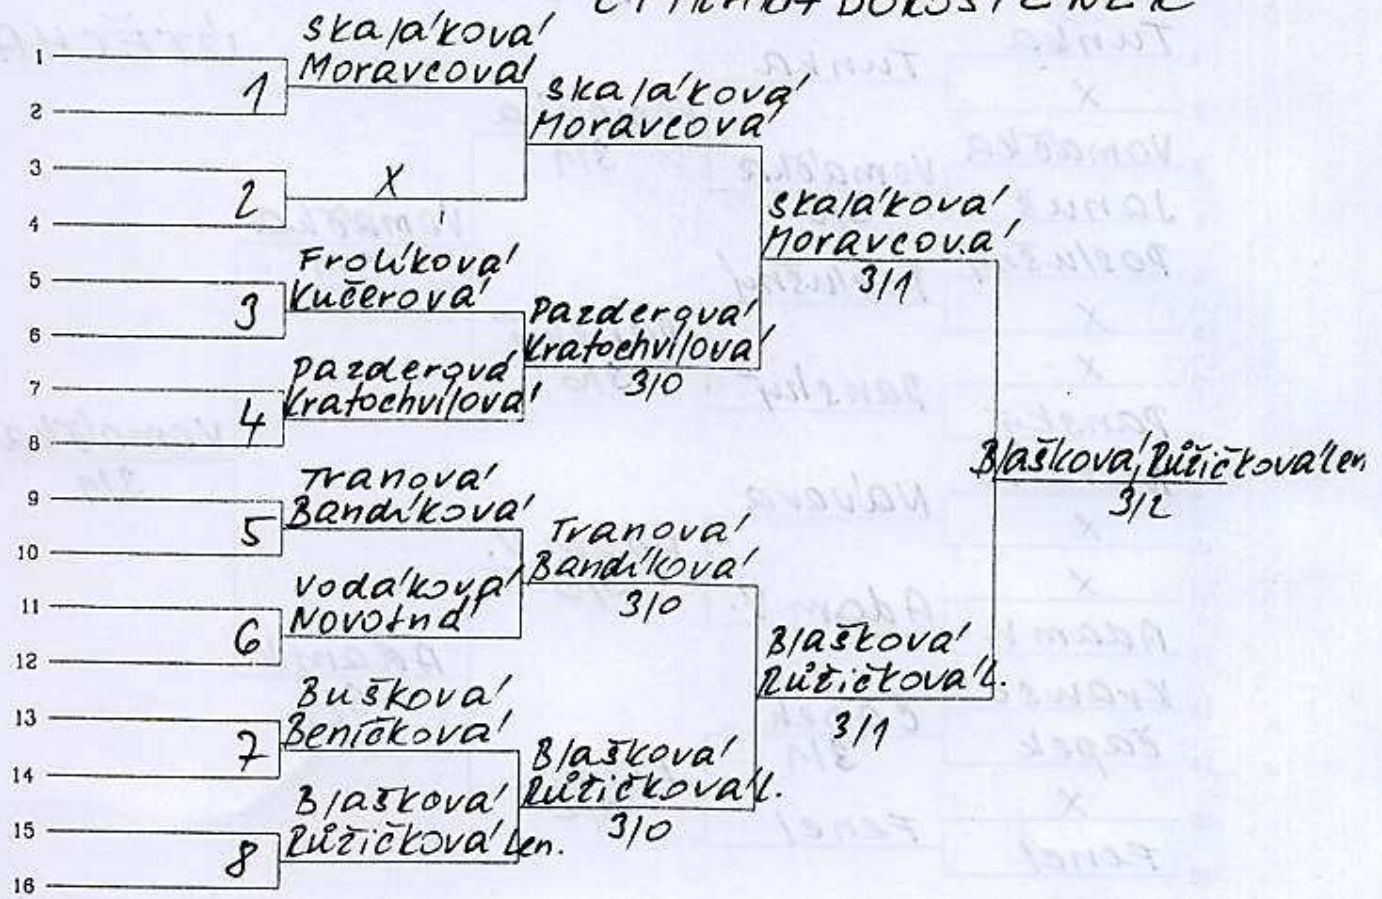 DOROSTENEK
1
2
3
4
5
6
7
8
9
10
11
12
13
14
15
16
1
2
3
4
5
6
7
8
Skaláková
Moravcová
X
Frolíková
Kučerová
Pazderová
Kratochvílová
Tranová
Bandíková
Vodáková
Novotná
Bušková
Beníčková
Blašková
Růžičková Len.
Skaláková
Moravcová
Pazderová
Kratochvílová
3/0
Tranová
Bandíková
3/0
Blašková
Růžičková L.
3/0
Skaláková
Moravcová
3/1
Blašková
Růžičková L.
3/1
Blašková, Růžičková Len
3/2